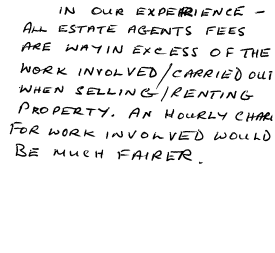 IN OUR EXPERIENCE -
ALL ESTATE AGENTS FEES
ARE WAY IN EXCESS OF THE
WORK INVOLVED/CARRIED OUT
WHEN SELLING/RENTING
PROPERTY. AN HOURLY CHAR
FOR WORK INVOLVED WOULD
BE MUCH FAIRER.